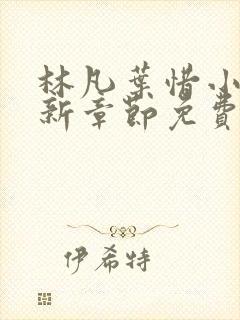 林凡葉惜小
新章節免費
伊希特